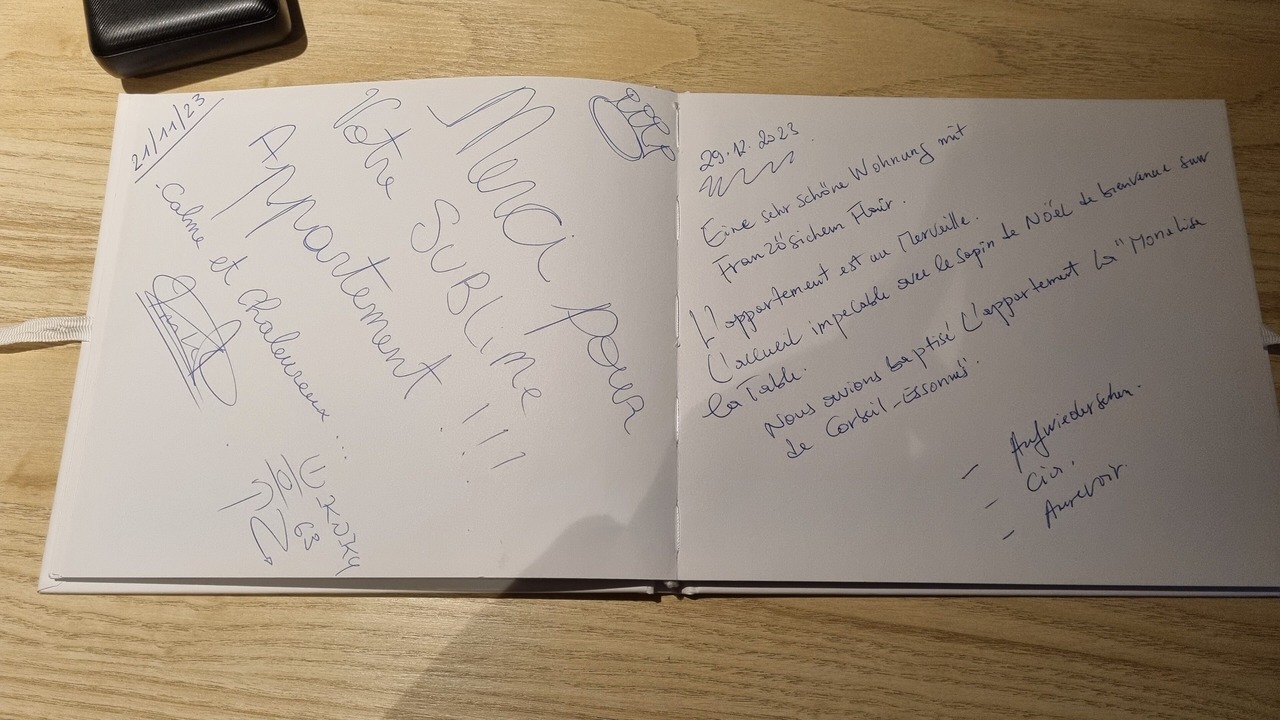 21/11/23
Merci pour
Votre SUBLime
Appartement !!!
- Calme et chaleureux...
63
29.12.2023
Eine sehr schöne Wohnung mit
Französichem Flair.
L'appartement est un Merveille.
L'accueil impecable avec le sapin de Nöel de bienvenue sur
la Table.
Nous avions baptisé L'appartement la "Monalise
de Corbeil-Essonnes".
- Aufwiedersehen.
- Ciao.
- Aurevoir.